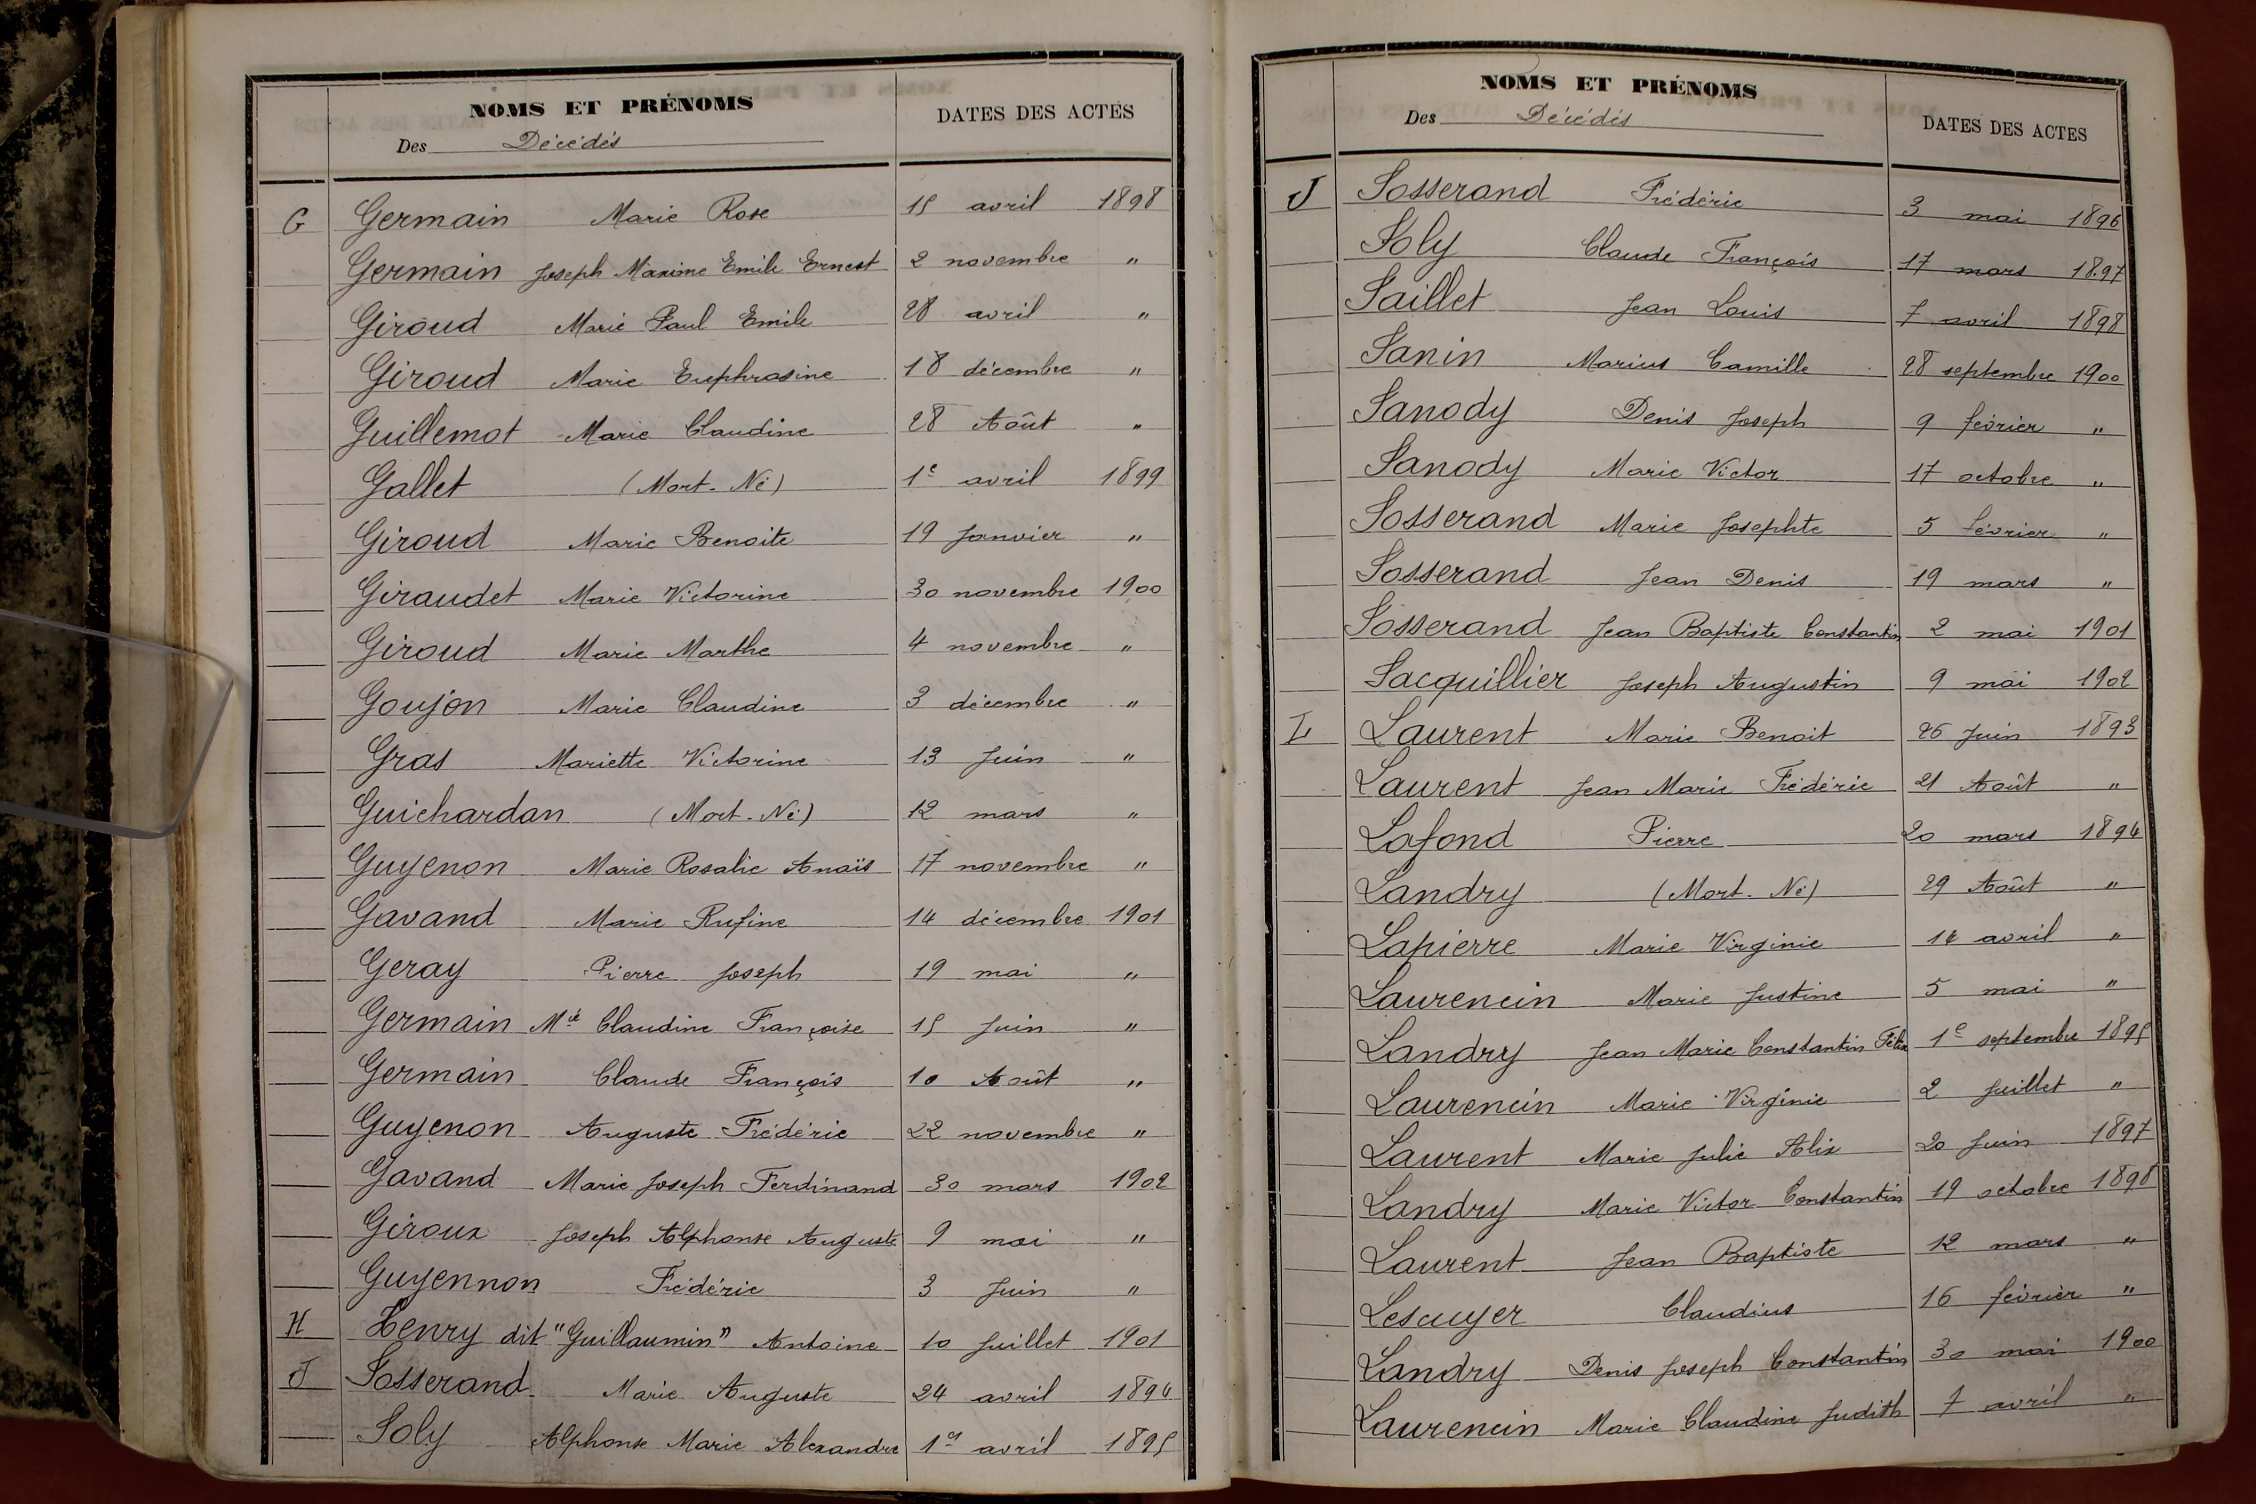 NOMS ET PRÉNOMS
Des Décédés
DATES DES ACTES
G Germain Marie Rose 15 avril 1898
Germain Joseph Maxime Emile Ernest 2 novembre "
Giroud Marie Paul Emile 28 avril "
Giroud Marie Euphrasine 18 décembre "
Guillemot Marie Claudine 28 Août "
Gallet (Mort-Né) 1e avril 1899
Giroud Marie Benoite 19 Janvier "
Giraudet Marie Victorine 30 novembre 1900
Giroud Marie Marthe 4 novembre "
Goujon Marie Claudine 3 décembre "
Gras Mariette Victorine 13 Juin "
Guichardan (Mort-Né) 12 mars "
Guyenon Marie Rosalie Anaïs 17 novembre "
Gavand Marie Rufine 14 décembre 1901
Geray Pierre Joseph 19 mai "
Germain Mie Claudine Françoise 15 Juin "
Germain Claude François 10 Août "
Guyenon Auguste Frédéric 22 novembre "
Gavand Marie Joseph Ferdinand 30 mars 1902
Giroux Joseph Alphonse Auguste 9 mai "
Guyennon Frédéric 3 Juin "
H Henry dit "Guillaumin" Antoine 10 Juillet 1901
J Josserand Marie Auguste 24 avril 1894
Joly Alphonse Marie Alexandre 1er avril 1895
NOMS ET PRÉNOMS
Des Décédés
DATES DES ACTES
J Josserand Frédéric 3 mai 1896
Joly Claude François 17 mars 1897
Jaillet Jean Louis 7 avril 1898
Janin Marius Camille 28 septembre 1900
Janody Denis Joseph 9 février "
Janody Marie Victor 17 octobre "
Josserand Marie Josephte 5 février "
Josserand Jean Denis 19 mars "
Josserand Jean Baptiste Constantin 2 mai 1901
Jacquillier Joseph Augustin 9 mai 1902
L Laurent Marie Benoit 26 Juin 1893
Laurent Jean Marie Frédéric 21 Août "
Lafond Pierre 20 mars 1894
Landry (Mort-Né) 29 Août "
Lapierre Marie Virginie 14 avril "
Laurencin Marie Justine 5 mai "
Landry Jean Marie Constantin Félix 1e septembre 1895
Laurencin Marie Virginie 2 Juillet "
Laurent Marie Julie Alix 20 Juin 1897
Landry Marie Victor Constantin 19 octobre 1898
Laurent Jean Baptiste 12 mars "
Lescuyer Claudius 16 février "
Landry Denis Joseph Constantin 30 mai 1900
Laurencin Marie Claudine Judith 7 avril "